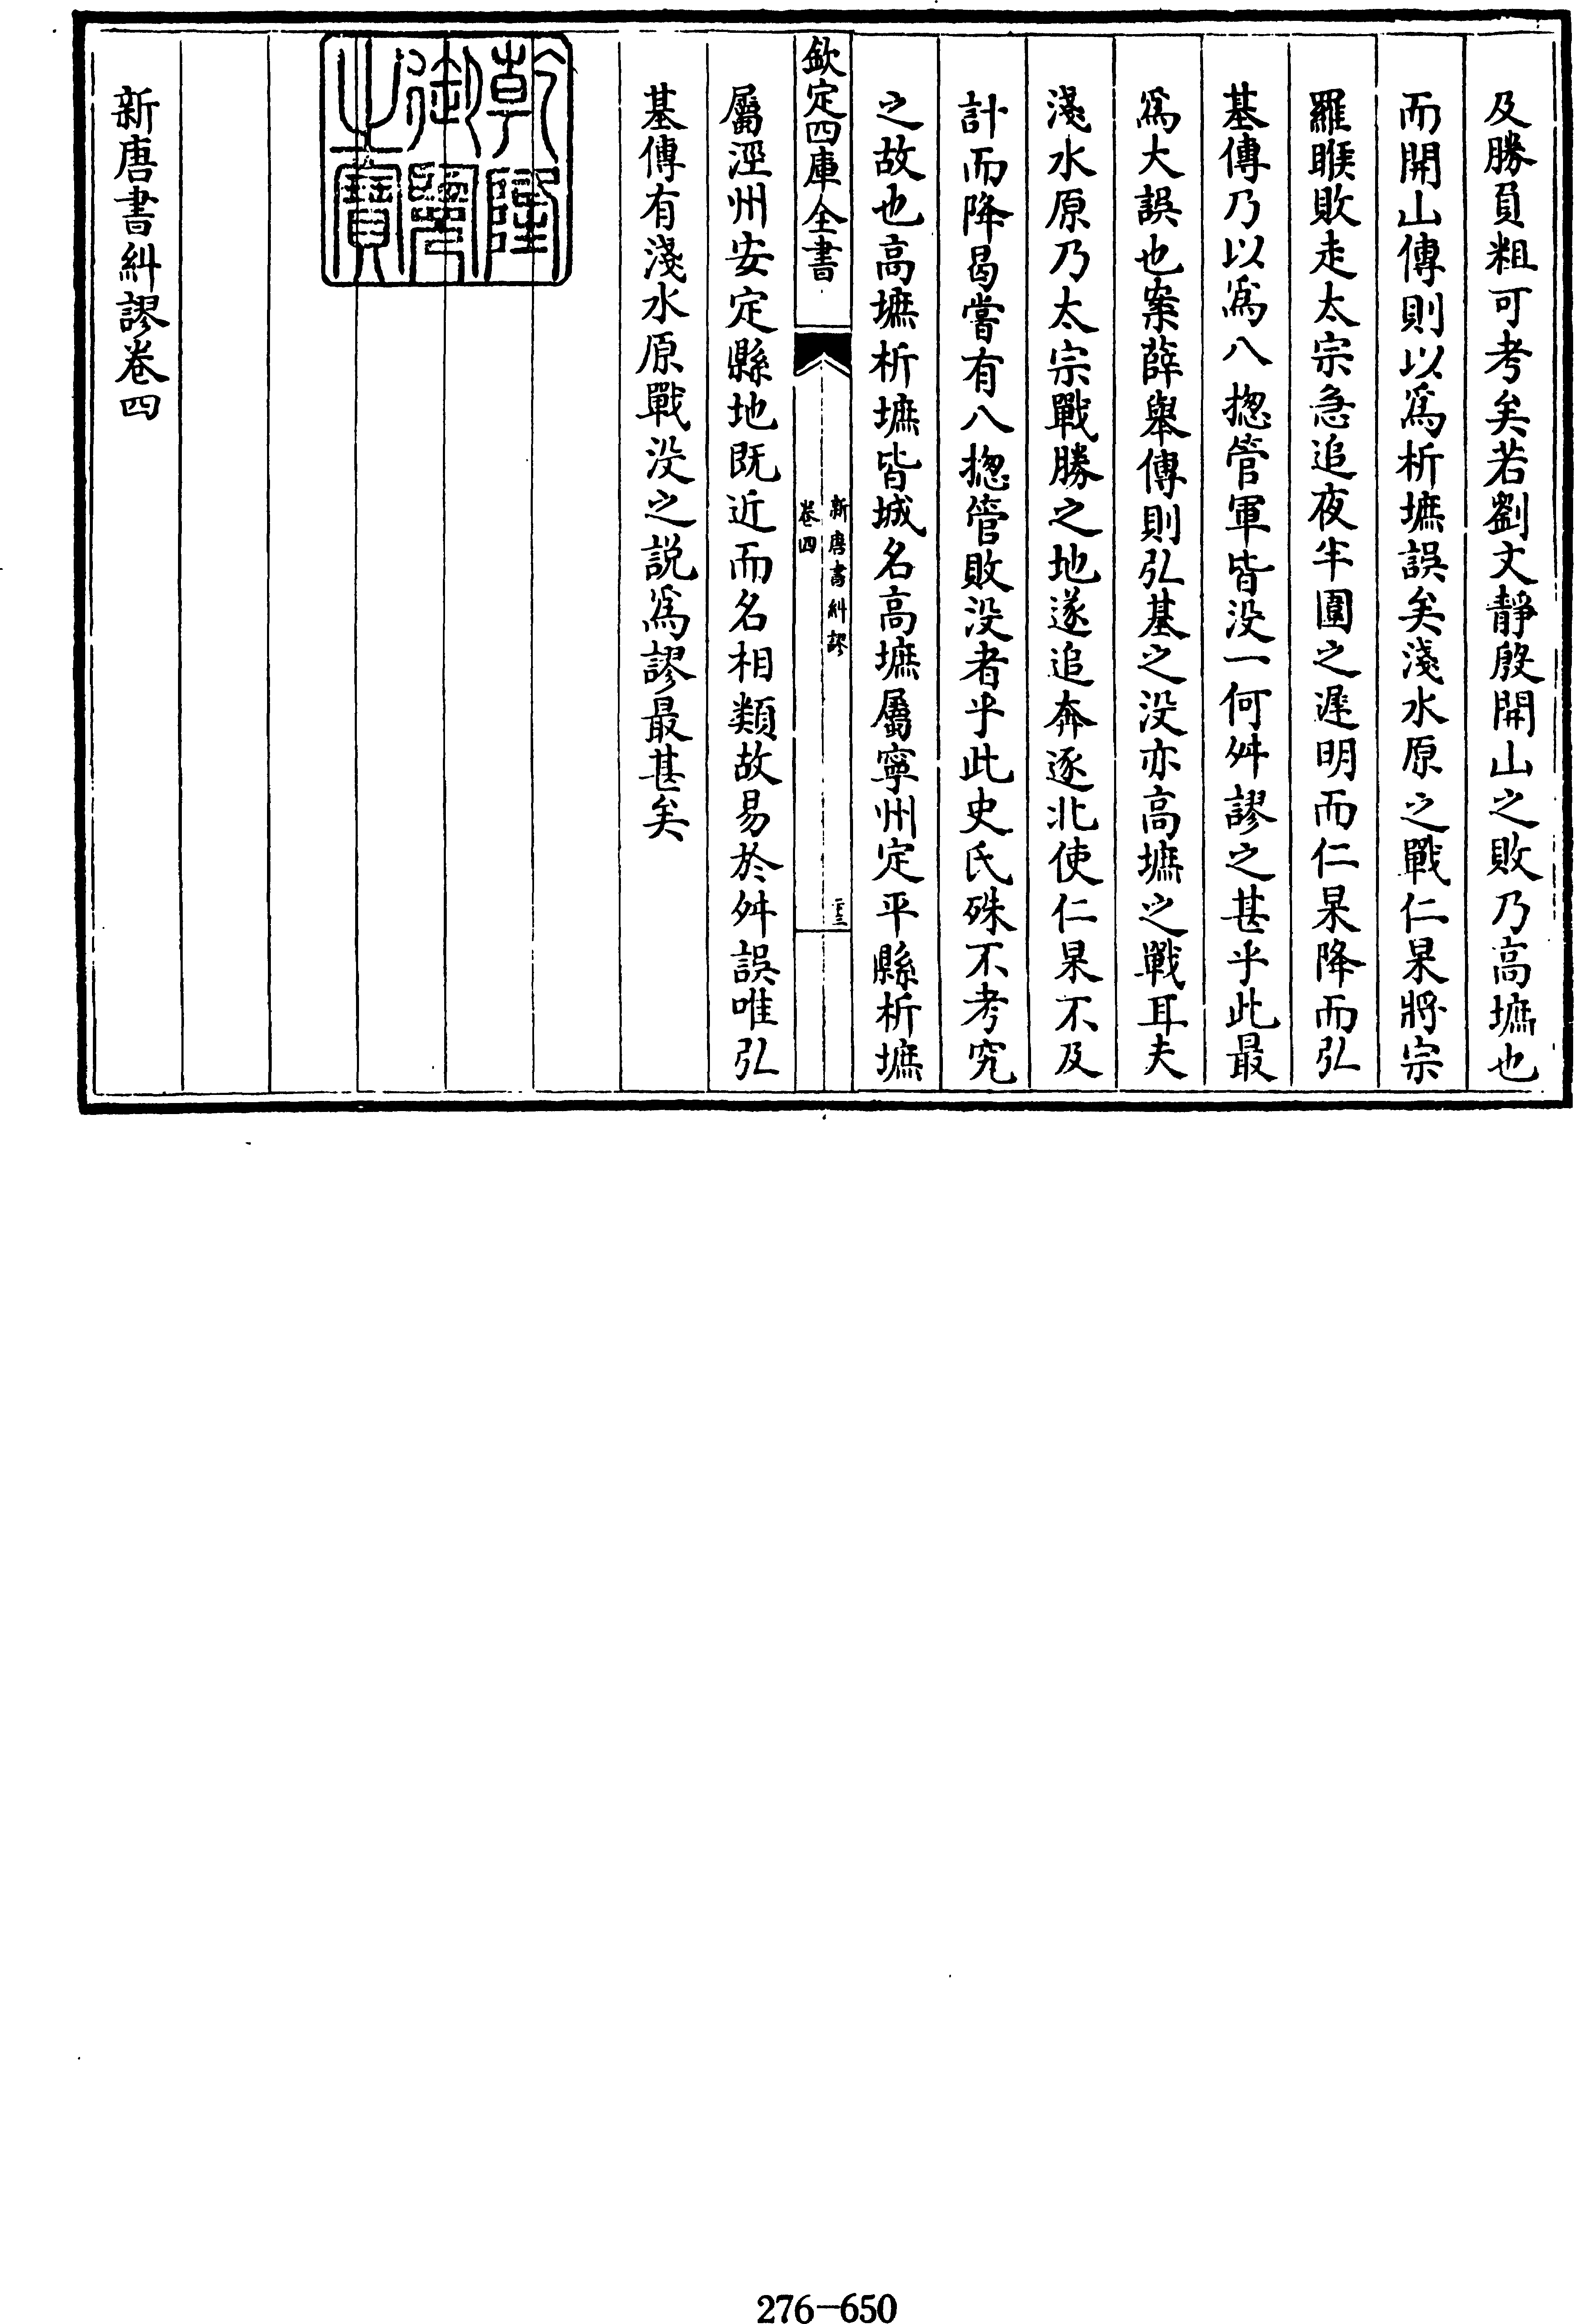 及勝負粗可考矣若劉文靜殷開山之敗乃高墌也
而開山傳則以爲析墌誤矣淺水原之戰仁杲將宗
羅睺敗走太宗急追夜半圍之遲明而仁杲降而弘
基傳乃以爲八揔管軍皆没一何舛謬之甚乎此最
爲大誤也案薛舉傳則弘基之没亦高墌之戰耳夫
淺水原乃太宗戰勝之地遂追奔逐北使仁杲不及
計而降曷嘗有八揔管敗没者乎此史氏殊不考究
之故也高墌析墌皆城名高墌屬寧州定平縣析墌
欽定四庫全書
新唐書糾謬
卷四
二十三
屬涇州安定縣地既近而名相類故易於舛誤唯弘
基傳有淺水原戰没之説爲謬最甚矣
乾隆御覽之寶
新唐書糾謬卷四
276-650